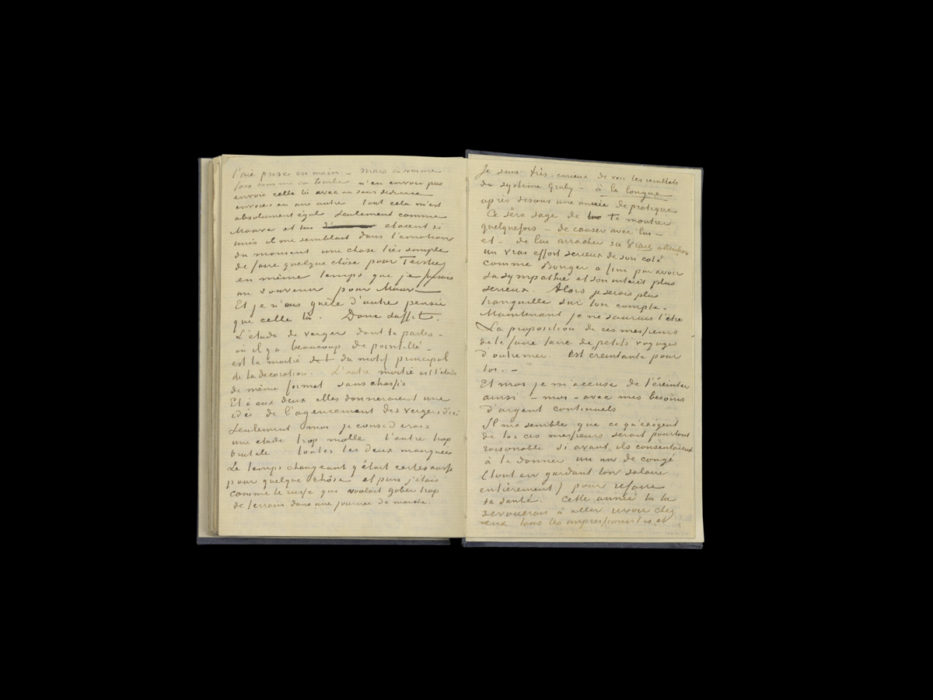 l'aie prises en main. – Mais
n'en envoie pas
envoie celle là avec ou sans dédicace
envoies en une autre tout cela m'est
absolument égal. Seulement comme
Mauve et toi étaient si
unis il me semblait dans l'émotion
du moment une chose très simple
de faire quelque chose pour Tersteeg
en même temps que je faisais
un souvenir pour Mauve
Et je n'ai guère d'autre pensée
que celle là. Donc suffit.
L'étude de verger dont tu parles –
où il y a beaucoup de pointillé –
est la moitié du motif principal
de la décoration. L'autre moitié est l'étude
de même format sans chassis
Et à eux deux elles donneraient une
idée de l'agencement des vergers d'ici
Seulement moi je considerais
une étude trop molle l'autre trop
brutale toutes les deux manquées
Le temps changeant y était certes aussi
pour quelque chose et puis j'étais
comme le russe qui voulait gober trop
de terrain dans une journée de marche.
Je suis très curieux de voir les resultats
du systeme Gruby – à la longue –
après disons une année de pratique
Ce sera sage de te montrer
quelquefois – de causer avec lui –
et – de lui arracher sa vraie attention
un vrai effort serieux de son coté
comme Bonger a fini par avoir
sa sympathie et son intérêt plus
serieux. Alors je serais plus
tranquille sur ton compte.
Maintenant je ne saurais l'être
La proposition de ces messieurs
de te faire faire de petits voyages
d'outremer est ereintante pour
toi. –
Et moi je m'accuse de t'éreinter
aussi – moi – avec mes besoins
d'argent continuels
Il me semble que ce qu'exigent
de toi ces messieurs serait pourtant
raisonable si avant ils consentaient
à te donner un an de congé
(tout en gardant ton salaire
entièrement) pour refaire
ta santé. Cette année là tu
devouerais à aller revoir chez
eux tous les impressionistes et